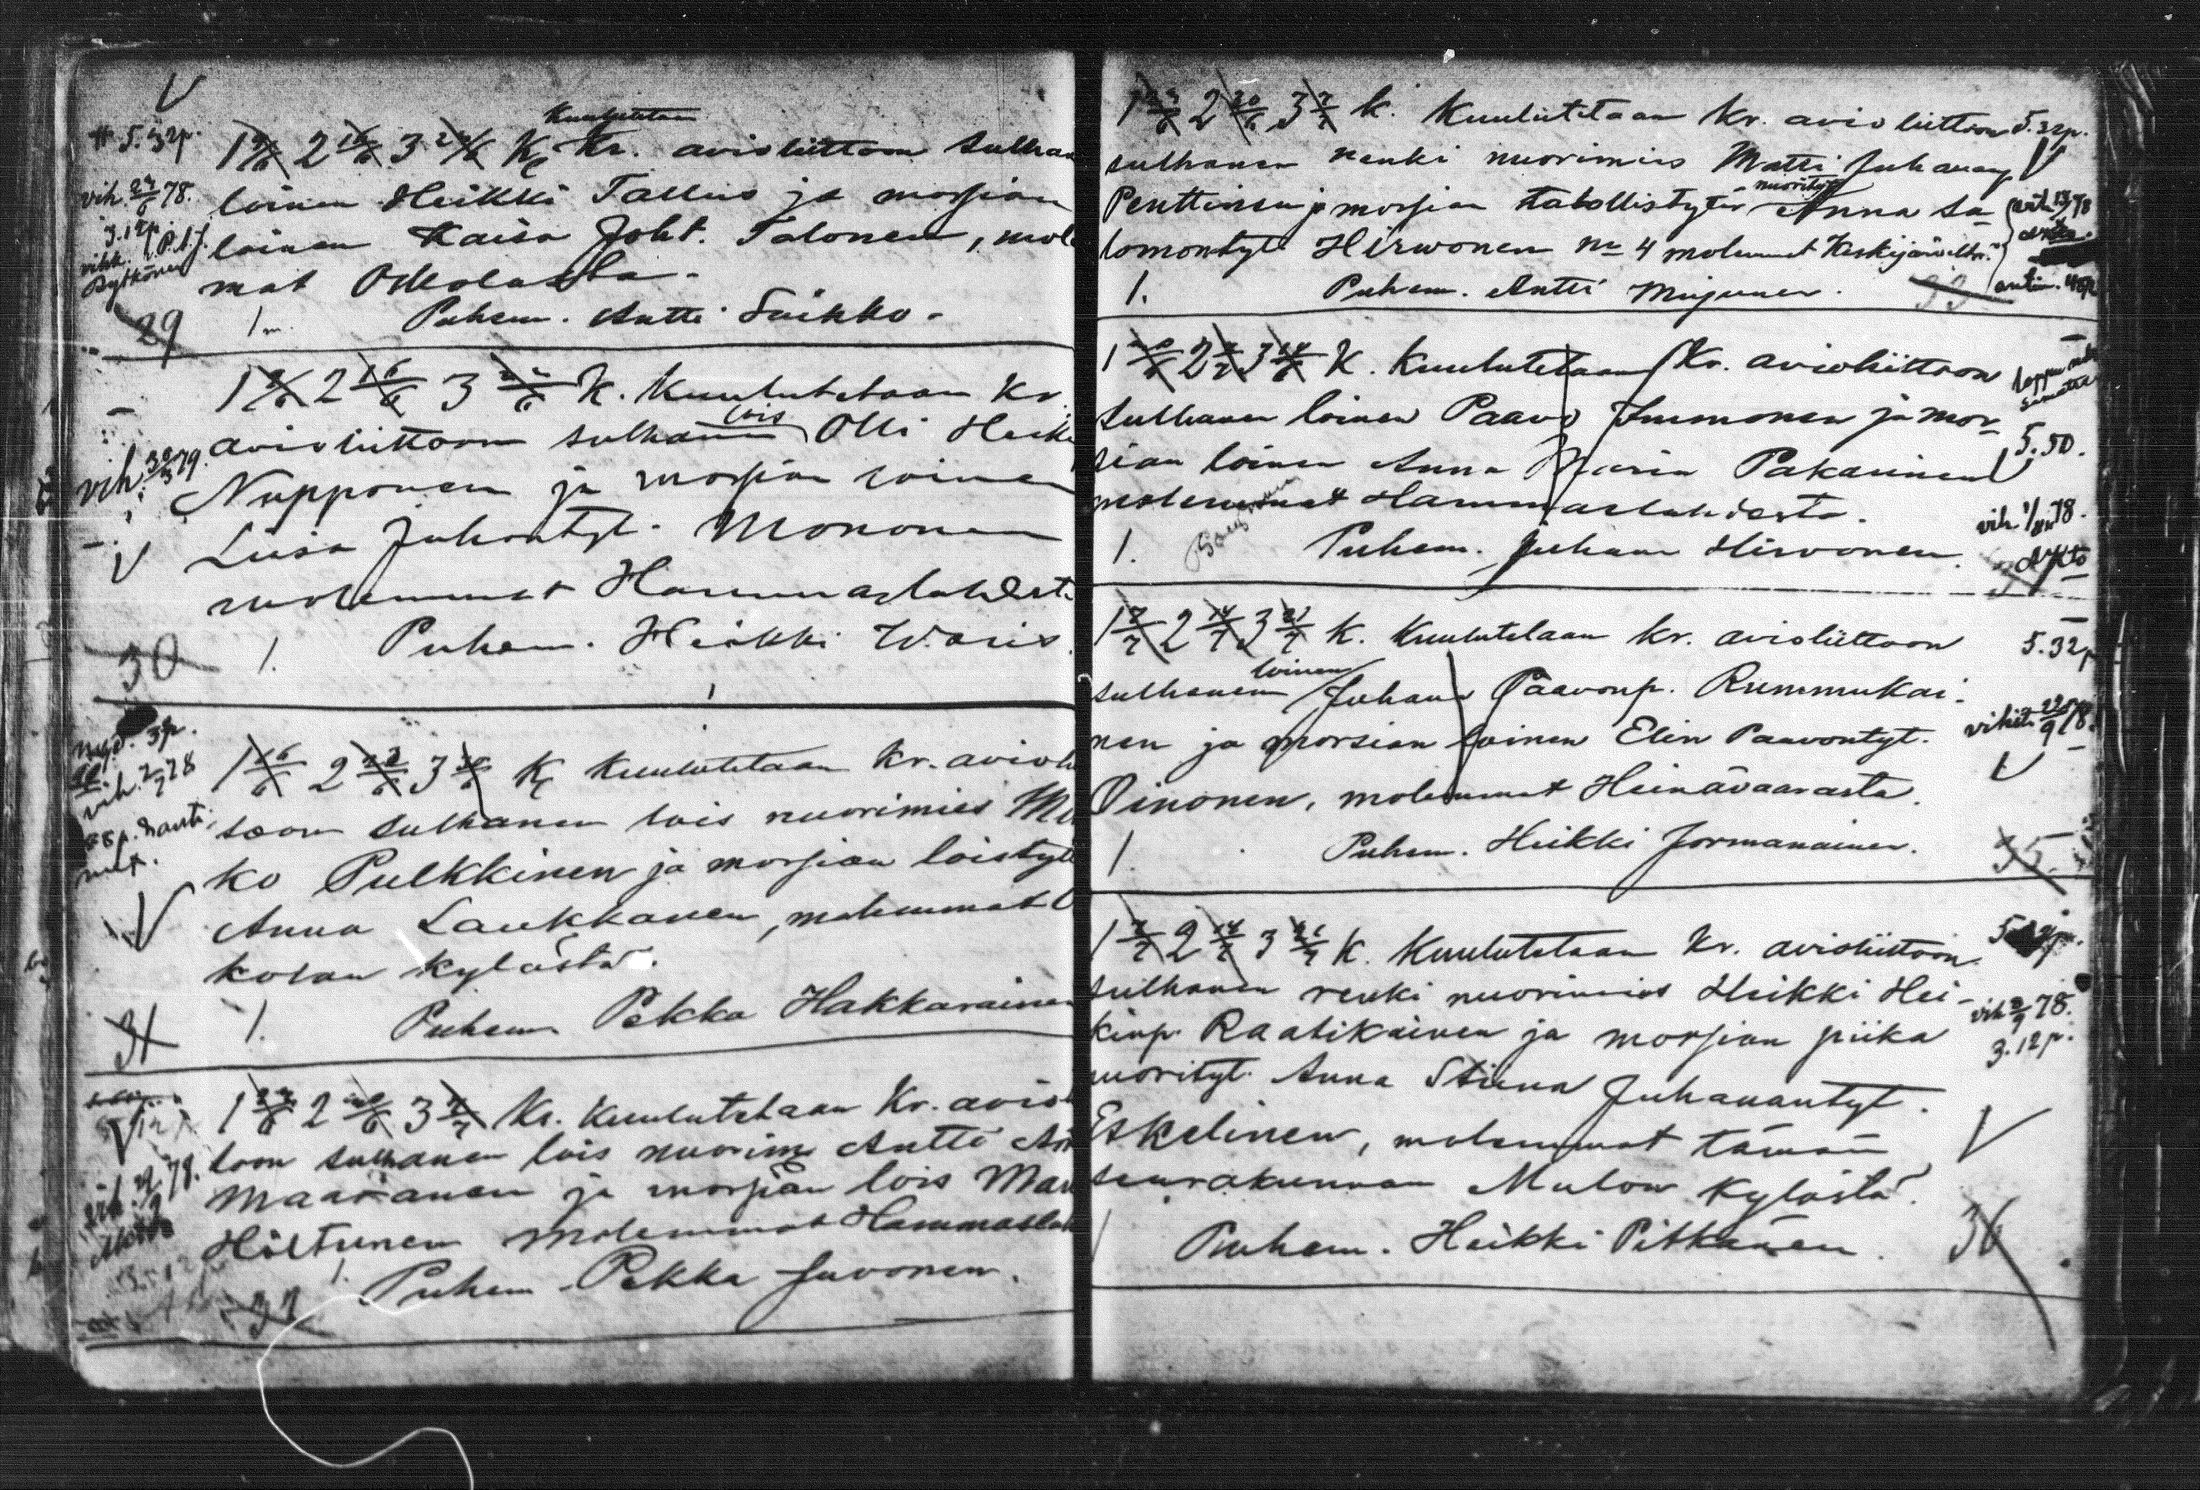 5.32p.
1 9/6 2 16/6 3 23/6 K. Kuulutetaan Kr. avioliittoon sulhan
vih. 23/6 78. loinen Heikki Tallus ja morsian
3.12p. loinen Kaisa Joht. Talonen, mole
vihk. P.t.J. Pytkönen
mat
29 1 Puhem. Antti Soikko.
1 9/6 2 16/6 3 K. Kuulutetaan Kr.
avioliittoon sulhanen lois Olli Heik
vih. 30/3 79.
Nupponen ja morsian loinen
Liisa Juhantyt. Mononen
molemmat Hammaslahdest
30 1. Puhem. Heikki Waris.
3p.
vih. 2/7 78
1 16/6 2 23/6 3 K. Kuulutetaan Kr. aviolii
toon sulhanen lois nuorimies Mi
ko Pulkkinen ja morsian loistyt
Anna Laukkanen, molemmat O
kolan kylästä.
31 1. Puhem. Pekka Hakkarainen
1 23/6 2 30/6 3 7/7 Kr. Kuulutetaan Kr. aviol
toon sulhanen lois nuorim. Antti
Maaranen ja morsian lois Mar
Hiltunen molemmat Hammaslah
1. Puhem. Pekka Juvonen.
32
1 23/6 2 30/6 3 7/7 K. Kuulutetaan Kr. avioliittoon 5.32p.
sulhanen renki nuorimies Matti Juhananp.
Penttinen ja morsian talollistytär nuorityt. Anna Sa
lomontyt Hirwonen No 4 molemmat Keskijärveltä.
1. Puhem. Antti Mujunen. 33
1 30/6 2 7/7 3 14/7 K. Kuulutetaan Kr. avioliittoon
sulhanen loinen Paavo Immonen ja mor-
sian loinen Anna Maria Pakarinen 5.50.
molemmat Hammaslahdesta.
vih 78.
1. Puhem. Juhana Hirvonen.
1 7/7 2 14/7 3 21/7 K. Kuulutetaan Kr. avioliittoon 5.32p
sulhanen loinen Juhana Paavonp. Rummukai-
nen ja morsian loinen Elin Paavontyt. vihit. 22/9 78.
Oinonen, molemmat Heinävaarasta.
1. Puhem. Heikki Jormanainen. 35.
1 7/7 2 14/7 3 21/7 K. Kuulutetaan Kr. avioliittoon
sulhanen renki nuorimies Heikki Hei-
kinp. Raatikainen ja morsian piika vih 78.
3.12p.
nuorityt. Anna Stiina Juhanantyt.
Eskelinen, molemmat tämän
seurakunnan Mulon kylästä.
Puhem. Heikki Pitkänen. 36